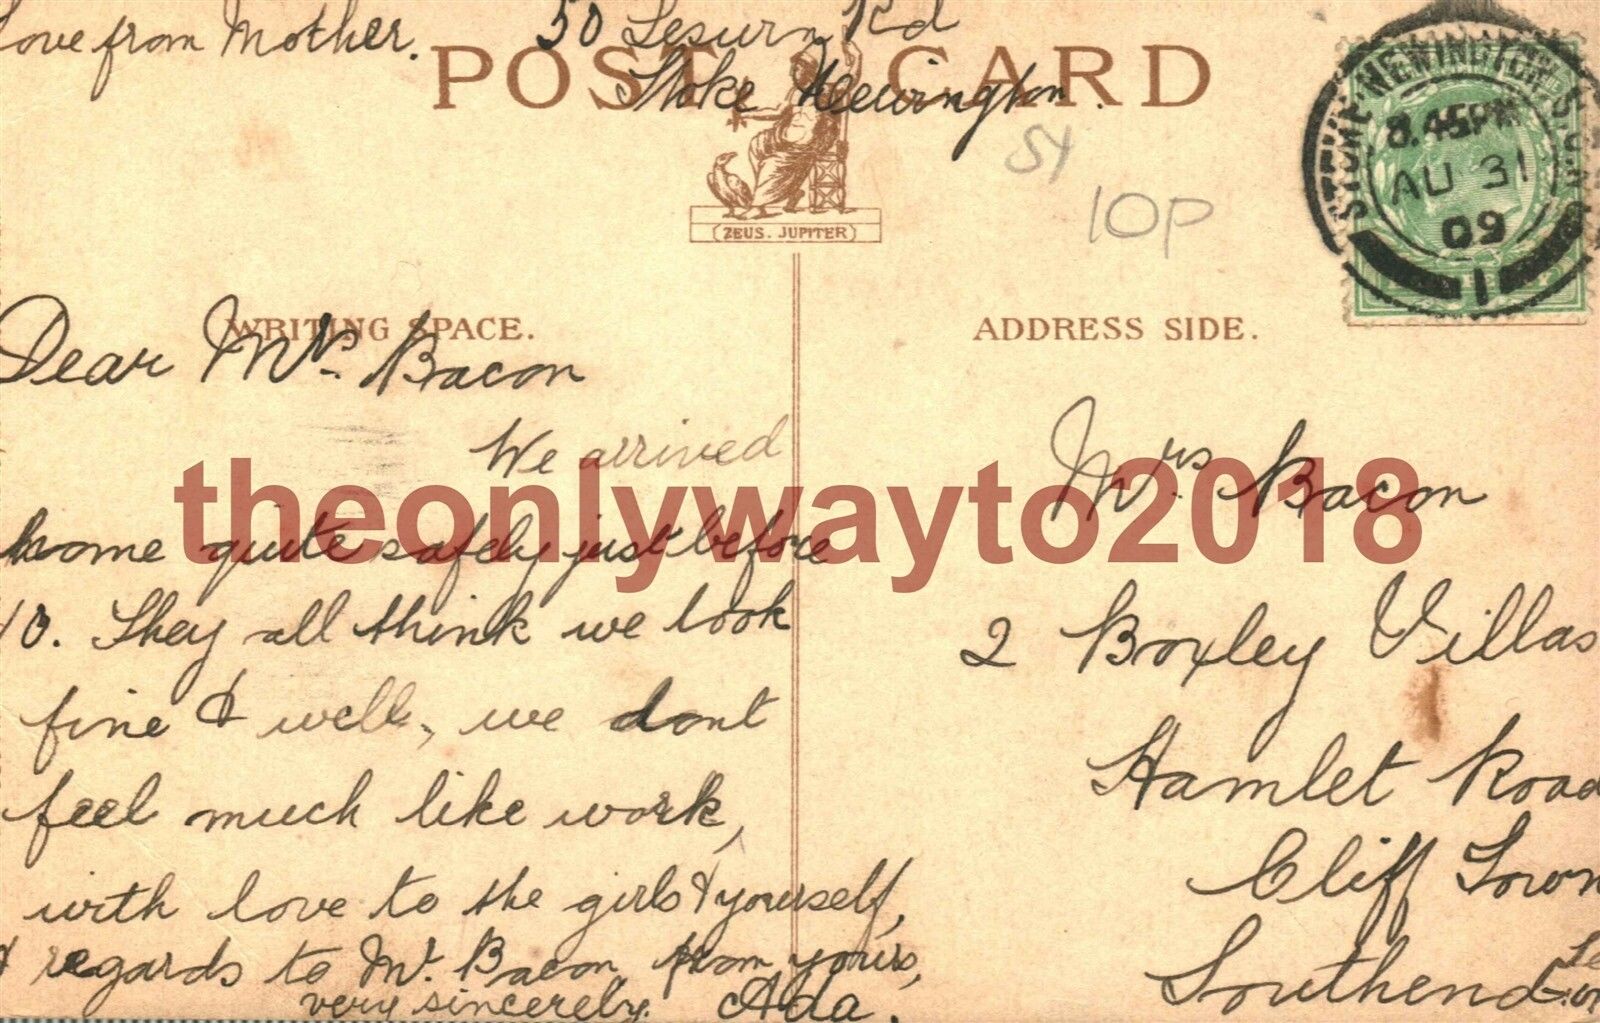 Love from Mother.
50 Lesurn Rd
Stoke Newington.
POST CARD
ZEUS. JUPITER
5Y
10P
STOKE NEWINGTON
8.45PM
AU 31
09
1
WRITING SPACE.
ADDRESS SIDE.
Dear Mrs. Bacon
We arrived
home quite safely just before
10. They all think we look
fine & well, we dont
feel much like work,
with love to the girls & yourself,
& regards to Mr. Bacon from yours,
very sincerely. Ada.
Mrs Bacon
2 Boxley Villas
Hamlet Road
Cliff Town
Southend
theonlywayto2018